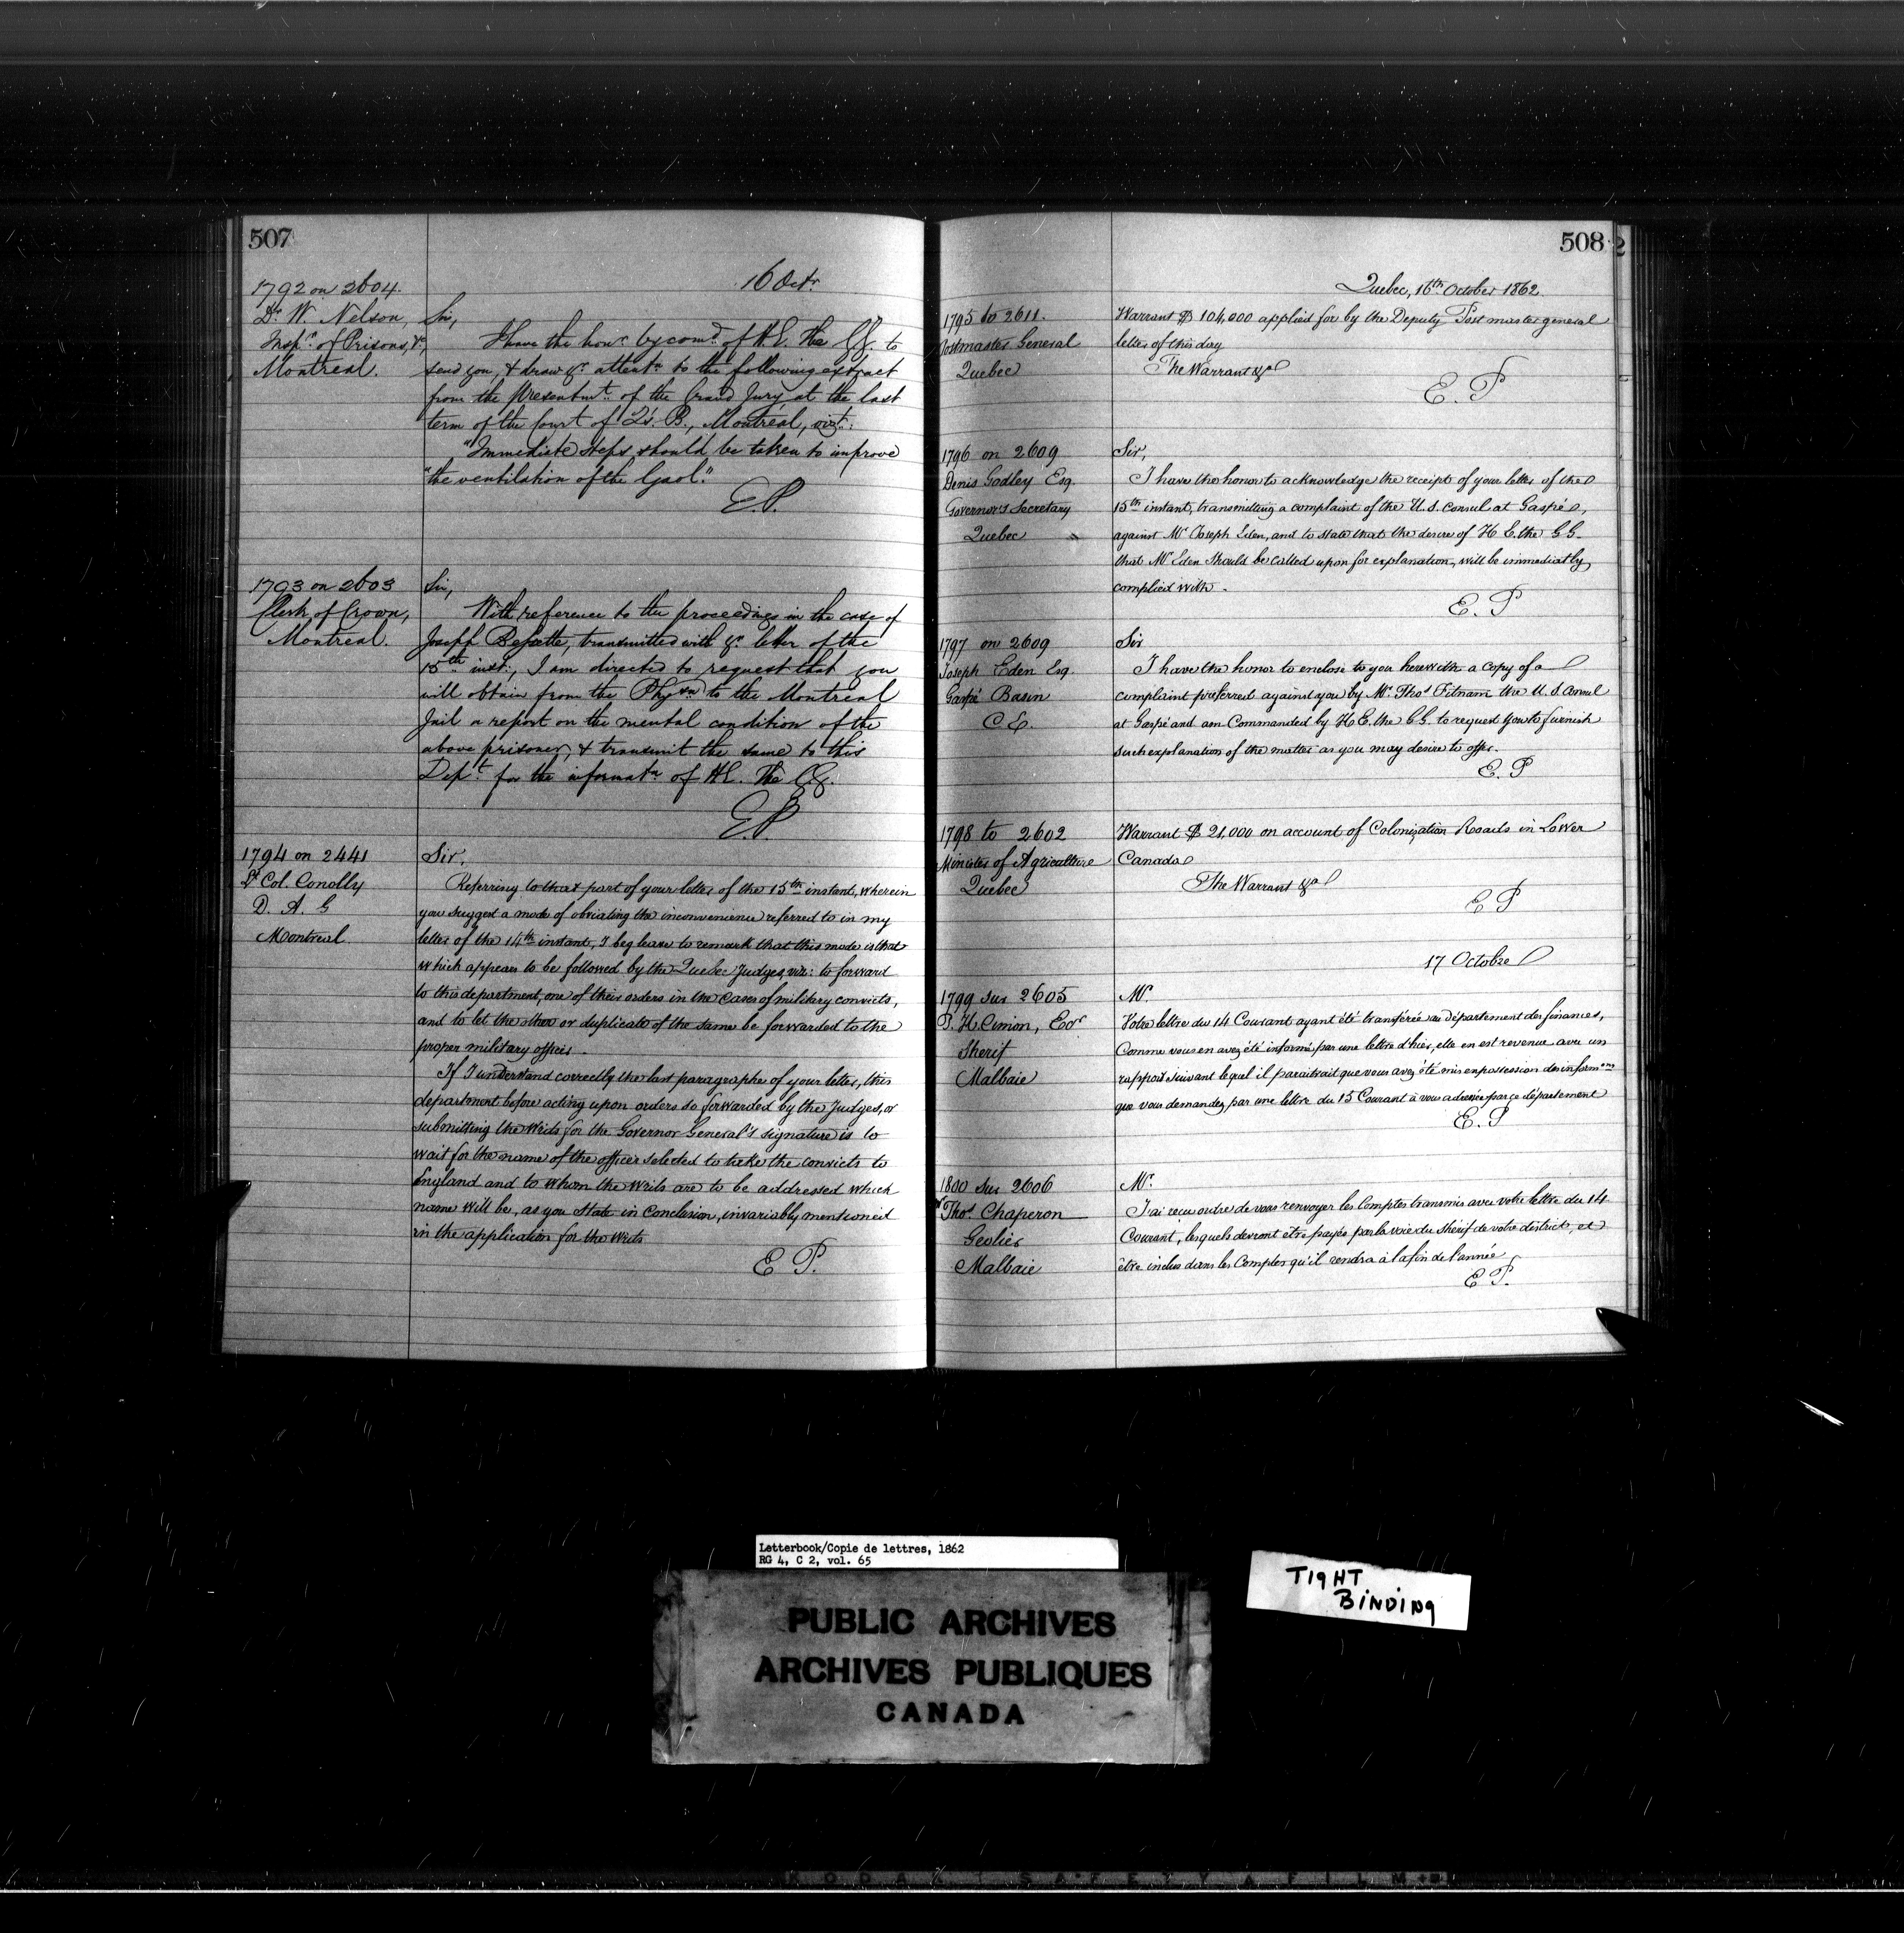 507
16 Octr.
1792 on 2604.
Dr. W. Nelson,
Inspr. of Prisons, &c,
Montreal.
Sir,
I have the honr. by comd. of H.E. The G.G. to
send you, & draw yr. attentn. to the following extract
from the Presentmt. of the Grand Jury at the last
term of the Court of Q's. B., Montreal, viz:
"Immediate steps should be taken to improve
"the ventilation of the Gaol."
E.P.
1793 on 2603
Clerk of Crown,
Montreal.
Sir,
With reference to the proceedings in the case of
Joseph Bessette, transmitted with yr. letter of the
15th inst., I am directed to request that you
will obtain from the Physn. to the Montreal
Jail a report on the mental condition of the
above prisoner, & transmit the same to this
Dept. for the informatn. of H.E. The G.G.
E.P.
1794 on 2441
Lt Col. Conolly
D. A. G
Montreal.
Sir,
Referring to that part of your letter of the 15th instant, wherein
you suggest a mode of obviating the inconvenience referred to in my
letter of the 14th instant, I beg leave to remark that this mode is that
which appears to be followed by the Quebec Judges, viz: to forward
to this department, one of their orders in the cases of military convicts,
and to let the other or duplicate of the same be forwarded to the
proper military officer.
If I understand correctly the last paragraphe of your letter, this
department before acting upon orders so forwarded by the Judges, or
submitting the Writs for the Governor General's signature is to
wait for the name of the officer selected to take the convicts to
England and to whom the Writs are to be addressed which
name will be, as you state in conclusion, invariably mentioned
in the application for the Writs
E P.
508
Quebec, 16th October 1862.
1795 to 2611.
Postmaster General
Quebec
Warrant $ 104,000 applied for by the Deputy Post master general
letter of this day
The Warrant &a
E. P
1796 on 2609
Denis Godley Esq.
Governor's Secretary
Quebec
Sir,
I have the honor to acknowledge the receipt of your letter of the
15th instant, transmitting a complaint of the U. S. Consul at Gaspé,
against Mr Joseph Eden, and to state that the desire of H E. the G G.
that Mr Eden should be called upon for explanation, will be immediatly
complied with.
E. P
1797 on 2609
Joseph Eden Esq.
Gaspé Basin
C. E.
Sir
I have the honor to enclose to you herewith a copy of a
complaint preferred against you by Mr. Thos Fitnam the U S Consul
at Gaspé and am Commanded by H E. the G G. to request you to furnish
such explanation of the matter as you may desire to offer.
E. P
1798 to 2602
Minister of Agriculture
Quebec
Warrant $ 21,000 on account of Colonization Roads in Lower
Canada
The Warrant &a
E P
17 Octobre
1799 sur 2605
P. H. Cimon, Ecr
Sherif
Malbaie
Mr.
Votre lettre du 14 Courant ayant été transférée au département des finances,
Comme vous en avez été informé par une lettre d'hier, elle en est revenue avec un
rapport suivant lequel il paraitrait que vous avez été mis en possession des informons
que vous demandez par une lettre du 15 Courant à vous adressée par ce département
E. P
1800 sur 2606
Mr Thos. Chaperon
Geolier
Malbaie
Mr.
J'ai recu ordre de vous renvoyer les Comptes transmis avec votre lettre du 14
Courant, lesquels devront etre payés par la voie du Shérif de votre district, et
être inclus dans les Comptes qu'il rendra à la fin de l'année
E P.
Letterbook/Copie de lettres, 1862
RG 4, C 2, vol. 65
TIGHT
BINDING
PUBLIC ARCHIVES
ARCHIVES PUBLIQUES
CANADA
KODAK SAFETY FILM